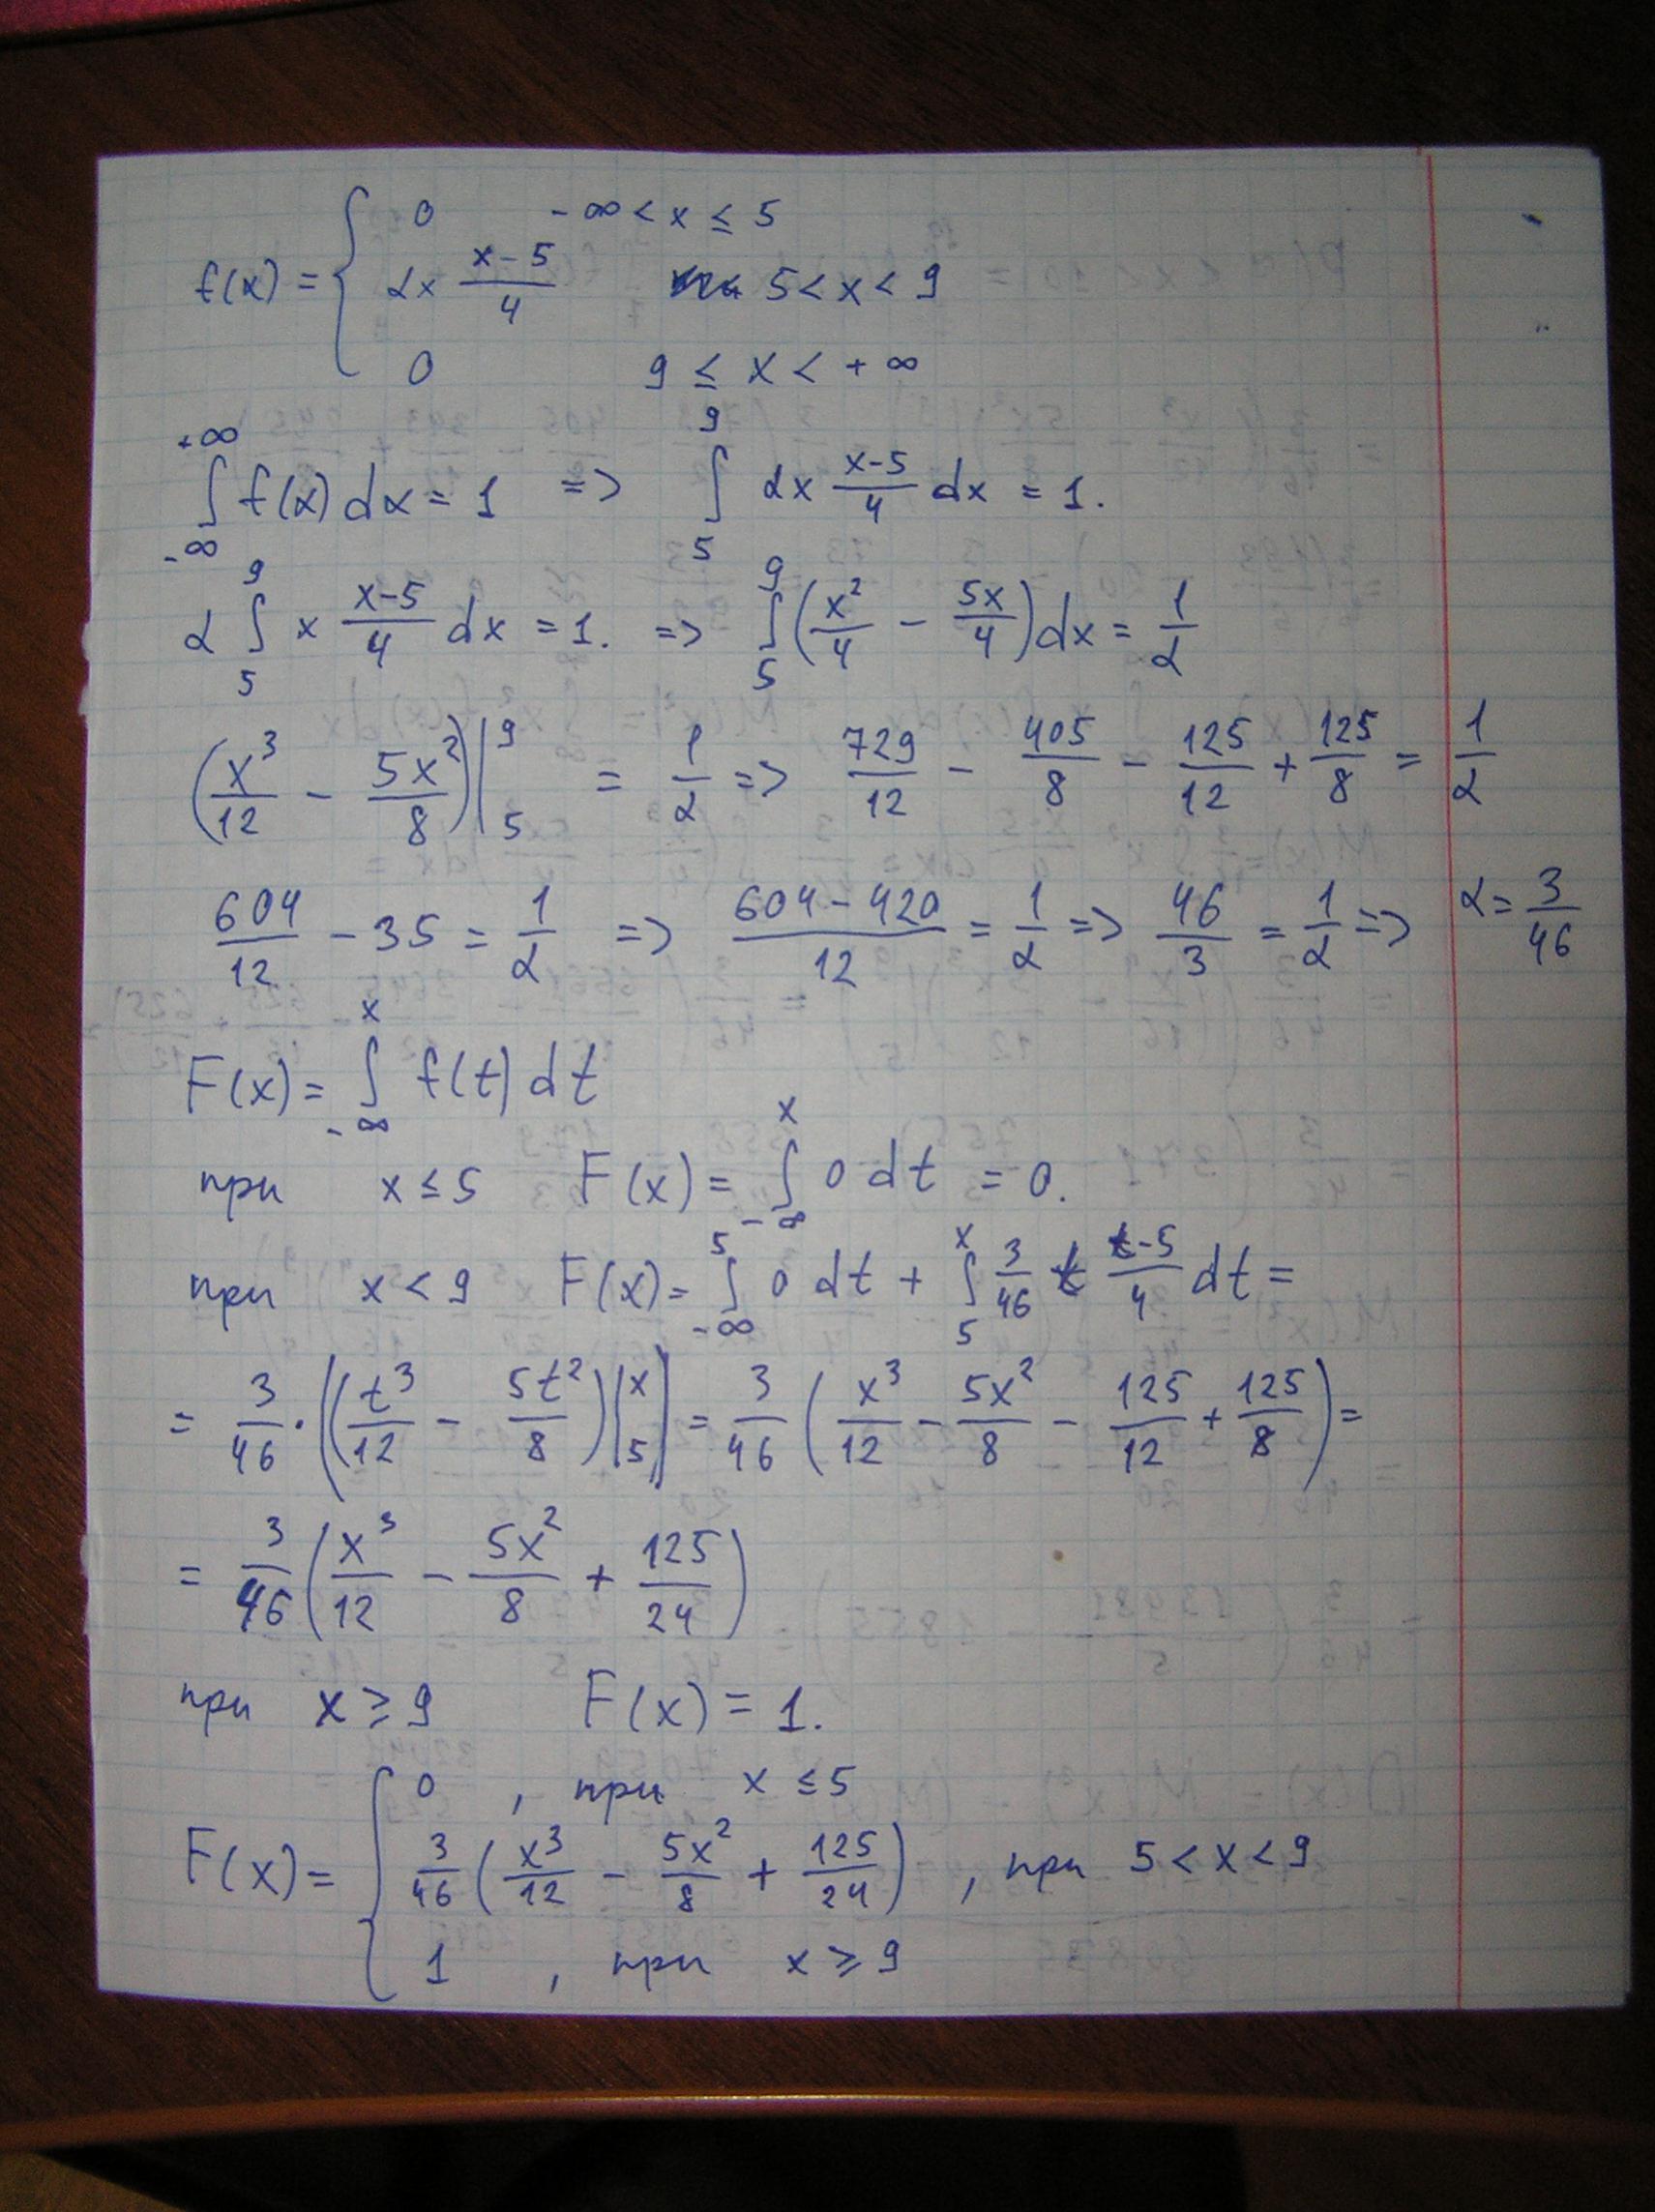 f(x) = { 0 -∞ < x ≤ 5
αx (x-5)/4 5 < x < 9
0 9 ≤ x < +∞
∫_{-∞}^{+∞} f(x) dx = 1 => ∫_5^9 αx (x-5)/4 dx = 1.
α ∫_5^9 x (x-5)/4 dx = 1. => ∫_5^9 (x²/4 - 5x/4) dx = 1/α
(x³/12 - 5x²/8)|_5^9 = 1/α => 729/12 - 405/8 - 125/12 + 125/8 = 1/α
604/12 - 35 = 1/α => (604-420)/12 = 1/α => 46/3 = 1/α => α = 3/46
F(x) = ∫_{-∞}^x f(t) dt
при x ≤ 5 F(x) = ∫_{-∞}^x 0 dt = 0.
при x < 9 F(x) = ∫_{-∞}^5 0 dt + ∫_5^x 3/46 t (t-5)/4 dt =
= 3/46 · ((t³/12 - 5t²/8)|_5^x) = 3/46 (x³/12 - 5x²/8 - 125/12 + 125/8) =
= 3/46 (x³/12 - 5x²/8 + 125/24)
при x ≥ 9 F(x) = 1.
F(x) = { 0 , при x ≤ 5
3/46 (x³/12 - 5x²/8 + 125/24) , при 5 < x < 9
1 , при x ≥ 9